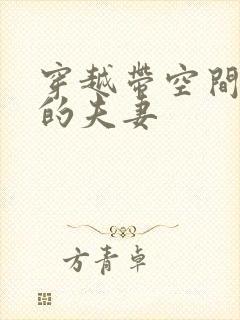 穿越帶空間
的夫妻
方青卓